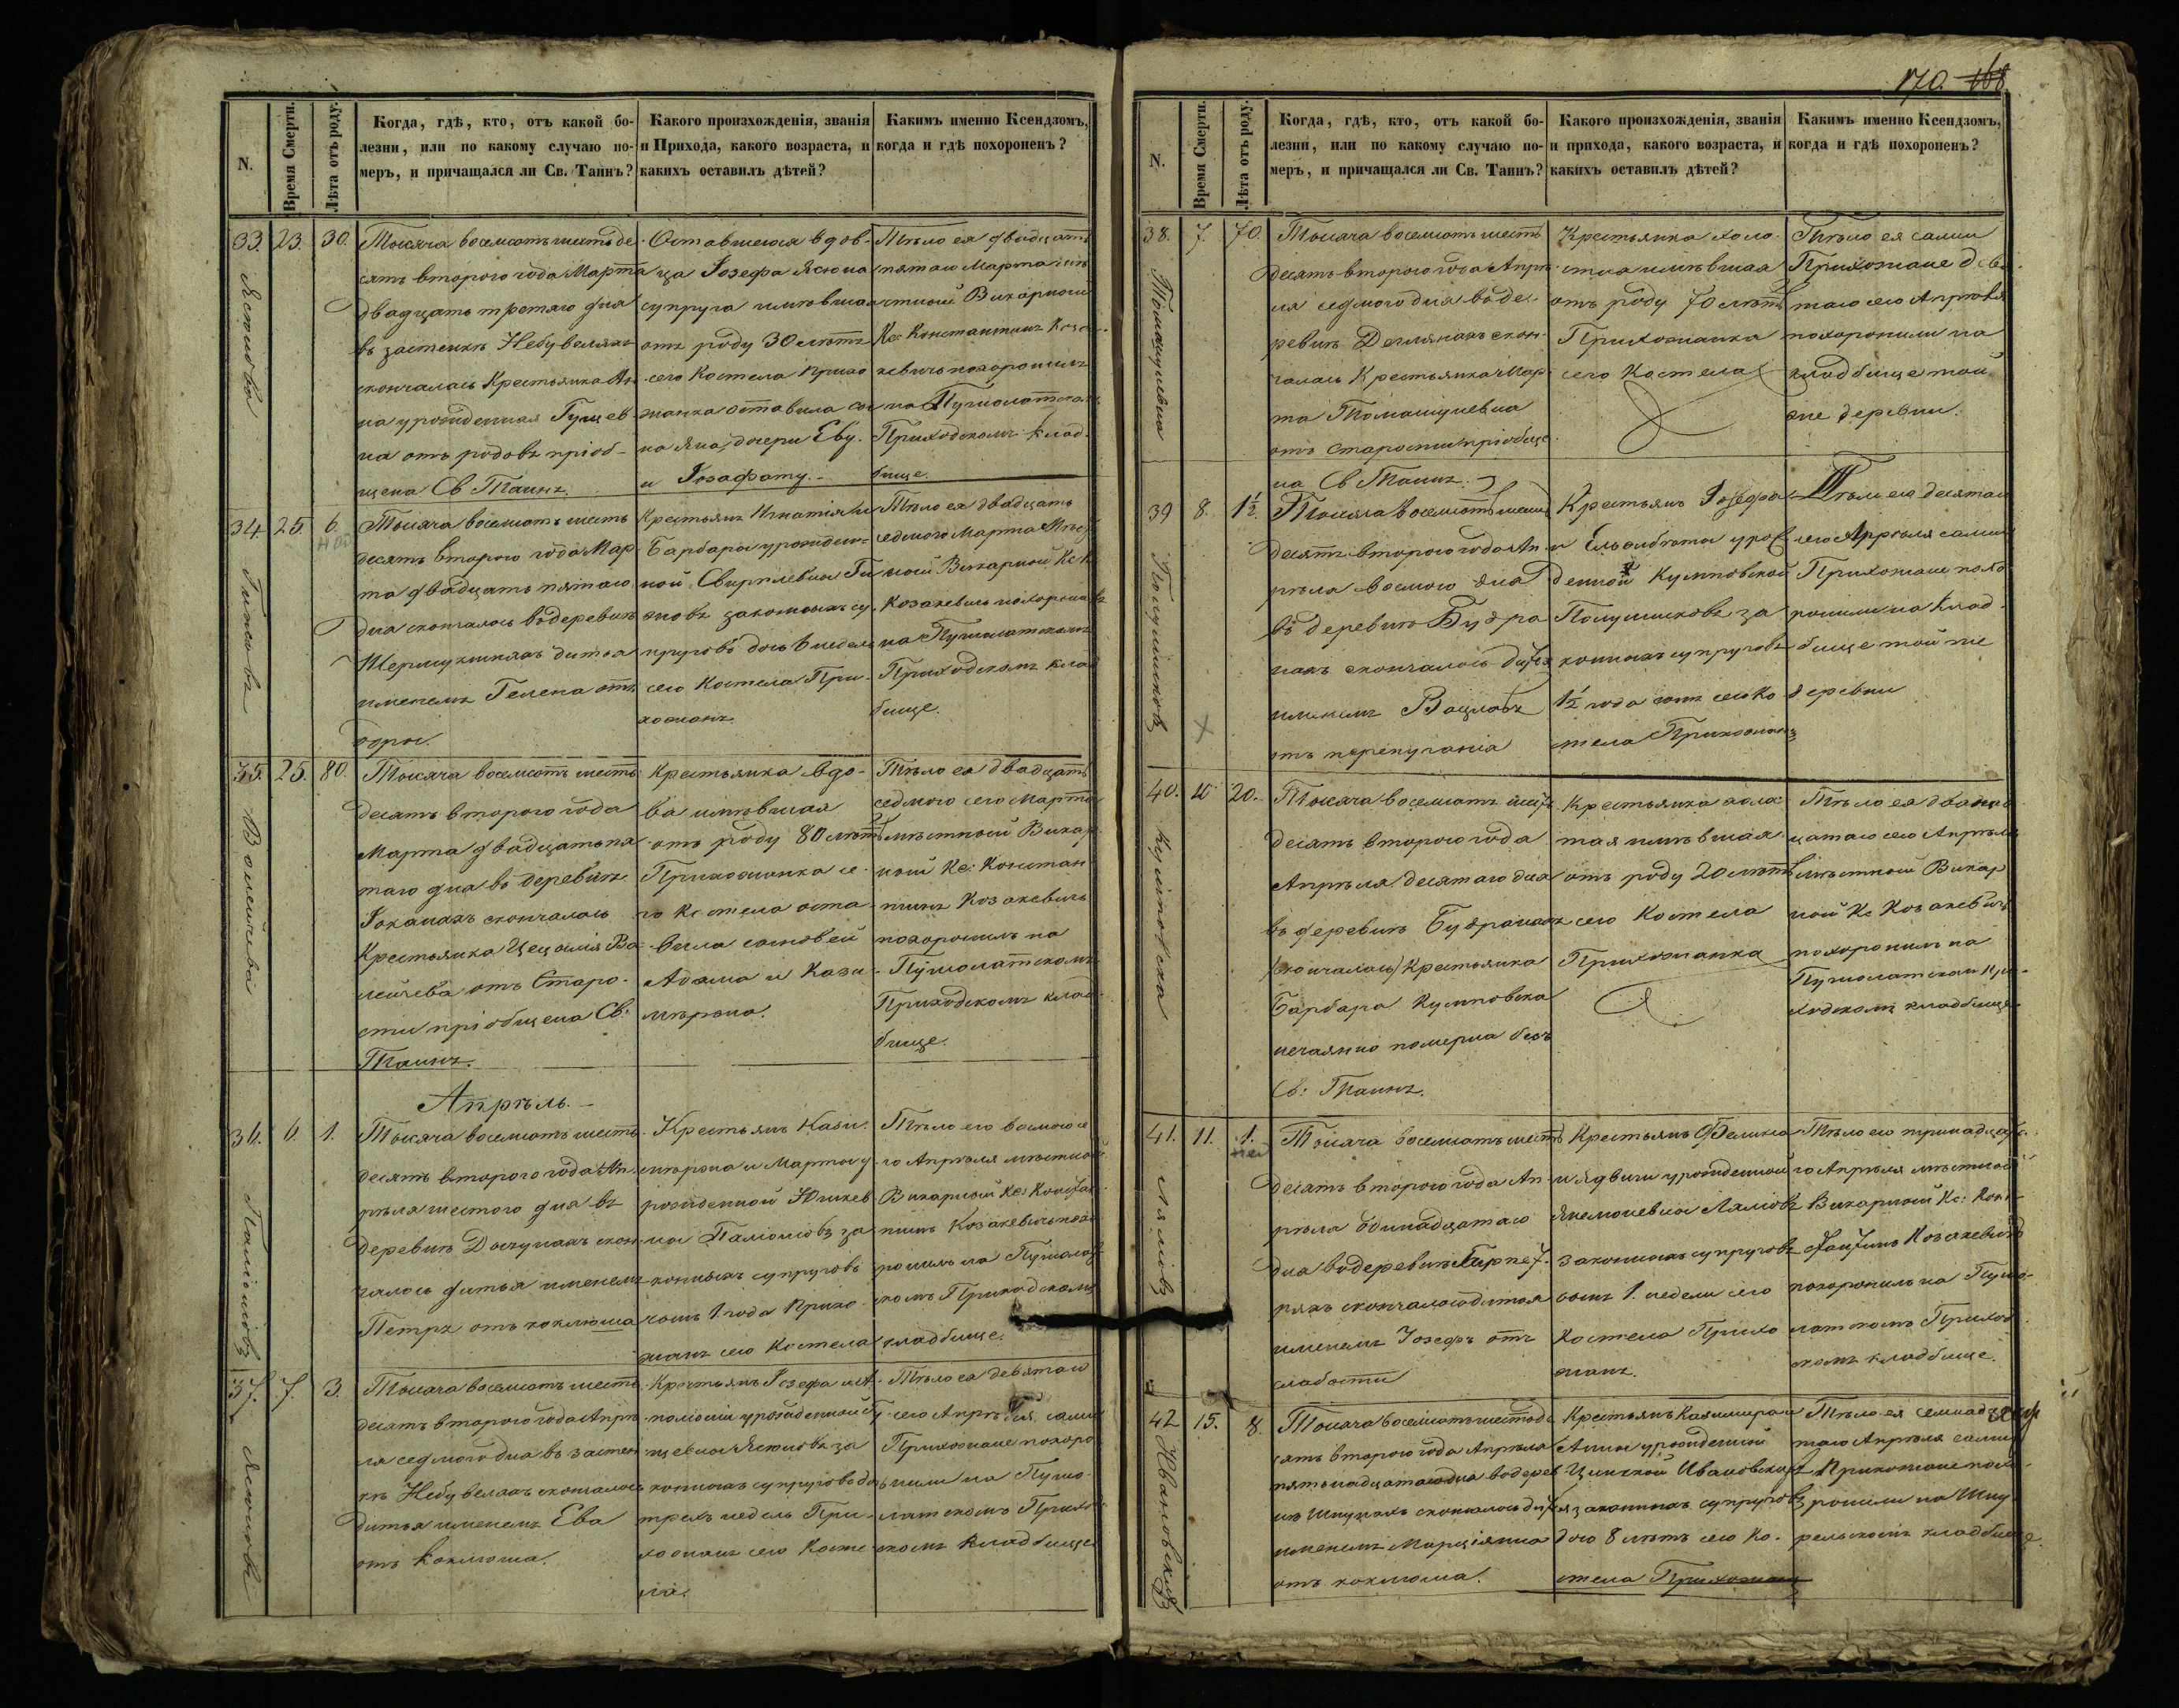 170. 168
N.
Время Смерти.
Лѣта отъ роду.
Когда, гдѣ, кто, отъ какой бо-
лезни, или по какому случаю по-
меръ, и причащался ли Св. Таинъ?
Какого произхожденія, званія
и Прихода, какого возраста, и
какихъ оставилъ дѣтей?
Какимъ именно Ксендзомъ,
когда и гдѣ похороненъ?
33. 23. 30.
Тысяча восемсотъ шестьде-
сятъ второго года Марта
двадцать третяго дня
въ застенкѣ Небувеляхъ
скончалась Крестьянка Ан-
на урожденная Гущев-
на отъ родовъ пріоб-
щена Св Таинъ.
Оставшегося вдов-
ца Іозефа Ясюна
супруга имѣвшая
отъ роду 30 лѣтъ
сего Костела прихо
жанка оставила сы
на Яна, дочери Еву
и Іозафату.
Тѣло ея двадцать
пятаго Марта мѣ
стный Викарный
Кс: Константинъ Коза
кевичъ похоронилъ
на Пушолатскомъ
Приходскомъ клад
бище.
34 25. 6
Тысяча восемсотъ шесть
десятъ второго года Мар
та двадцать пятаго
дня скончалось въ деревнѣ
дитя
именемъ Гелена отъ
одры.
Крестьянъ Игнатія и
Барбары урожден-
ной
законныхъ су
пруговъ дочь 6 недель
сего Костела При-
хожанъ.
Тѣло ея двадцать
седмого Марта мѣст
ный Викарный Кс: К
Козакевичъ похоронилъ
на Пушолатскомъ
Приходскомъ клад
бище.
35. 25. 80.
Тысяча восемсотъ шесть
десятъ второго года
Марта двадцать пя
таго дня въ деревнѣ
Іоканахъ скончалась
Крестьянка Цецилія Ва
лейчева отъ Старо-
сти пріобщена Св:
Таинъ.
Крестьянка вдо-
ва имѣвшая
отъ роду 80 лѣтъ
Прихожанка се-
го Костела оста
вила сыновей
Адама и Кази
мѣржа.
Тѣло ея двадцать
седмого сего Марта
мѣстный Викар
ный Кс: Констан
тинъ Козакевичъ
похоронилъ на
Пушолатскомъ
Приходскомъ клад
бище.
Апрѣль.
36. 6. 1.
Тысяча восемсотъ шесть
десятъ второго года Ап-
рѣля шестого дня въ
деревнѣ скон-
чалось дитя именемъ
Петръ отъ коклюша
Крестьянъ Кази-
мѣржа и Марты у
рожденной Юшкев
ны за
конныхъ супруговъ
сынъ 1 года Прихо-
жанъ сего Костела
Тѣло его восмого се
го Апрѣля мѣстный
Викарный Кс: Констан
тинъ Козакевичъ похо
ронилъ на Пушолат
скомъ Приходскомъ
кладбище.
37. 7. 3.
Тысяча восемсотъ шесть
десятъ второго года Апрѣ-
ля седмого дня въ застен
кѣ Небувеляхъ скончалось
дитя именемъ Ева
отъ коклюша.
Крестьянъ Іозефа и А
полоніи урожденной Гу
щевны Ясюновъ за
конныхъ супруговъ дочь
трехъ недель При-
хожанъ сего Косте
ла.
Тѣло ея девятаго
сего Апрѣля сами
Прихожане похоро
нили на Пушо-
латскомъ Приход
скомъ кладбище
38. 7. 70.
Тысяча восемсотъ шесть
десятъ второго года Апрѣ
ля седмого дня въ де-
ревнѣ Деглянахъ скон-
чалась Крестьянка Мар
та Томашуневна
отъ старости пріобще-
на Св Таинъ.
Крестьянка холо-
стая имѣвшая
отъ роду 70 лѣтъ
Прихожанка
сего Костела
Тѣло ея сами
Прихожане девя
таго сего Апрѣля
похоронили на
кладбище той
же деревни.
39 8. 1½.
Тысяча восемсотъ шесть
десятъ второго года Ап
рѣля восмого дня
въ деревнѣ Будра
нахъ скончалось дитя
именемъ Вацлавъ
отъ перепуганія
Крестьянъ Іозефа
и Ельжбеты урож
денной Кумповской
за
конныхъ супруговъ
1½ года сынъ сего Ко
стела Прихожанъ
Тѣло его десятаго
сего Апрѣля сами
Прихожане похо
ронили на клад-
бище той же
деревни
40. 10 20.
Кумповска
Тысяча восемсотъ шесть
десятъ второго года
Апрѣля десятаго дня
въ деревнѣ Будранахъ
скончалась Крестьянка
Барбара Кумповска
нечаянно померла безъ
Св: Таинъ.
Крестьянка холос
тая имѣвшая
отъ роду 20 лѣтъ
сего Костела
Прихожанка
Тѣло ея двенад
цатаго сего Апрѣля
мѣстный Викар
ный Кс Козакевичъ
похоронилъ на
Пушолатскомъ При-
ходскомъ кладбище
41. 11. 1.
нед
Тысяча восемсотъ шесть
десятъ второго года Ап-
рѣля одинадцатаго
дня въ деревнѣ
скончалось дитя
именемъ Іозефъ отъ
слабости
Крестьянъ Феликса
и Ядвиги урожденной
законныхъ супруговъ
сынъ 1. недели сего
Костела Прихо
жанъ.
Тѣло его тринадцата
го Апрѣля мѣстный
Викарный Кс: Кон-
стантинъ Козакевичъ
похоронилъ на Пушо-
латскомъ Приход
скомъ кладбище.
42 15. 8.
Ивановскихъ
Тысяча восемсотъ шестьде
сятъ второго года Апрѣля
пятьнадцатаго дня въ дерев
нѣ скончалось дитя
именемъ Марціянна
отъ коклюша.
Крестьянъ Казимира и
Анны урожденной
Ивановскихъ
законныхъ супруговъ
дочь 8 лѣтъ сего Ко-
стела Прихожанъ
Тѣло ея семнадца
таго Апрѣля сами
Прихожане похо-
ронили на
кладбище.